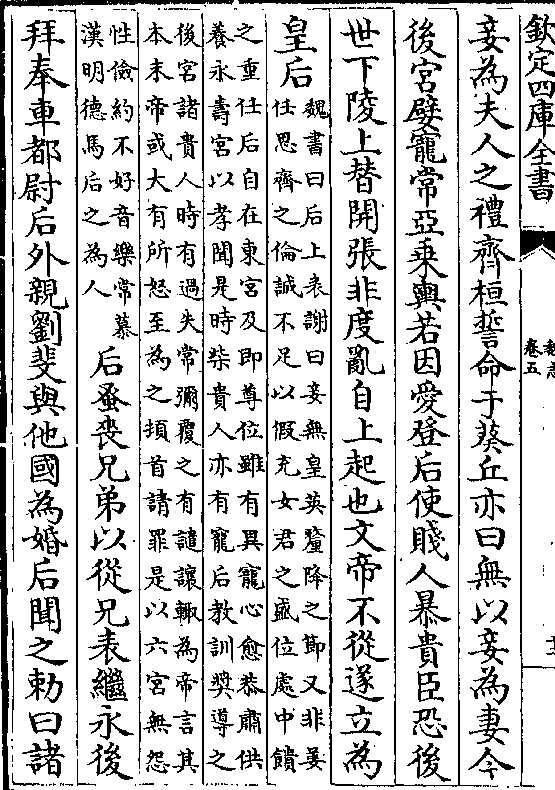 欽定四庫全書
魏志
卷五
妾為夫人之禮齊桓誓命于葵丘亦曰無以妾為妻今
後宮嬖寵常亞乗輿若因愛登后使賤人暴貴臣恐後
世下陵上替開張非度亂自上起也文帝不從遂立為
皇后
魏書曰后上表謝曰妾無皇英釐降之節又非姜
任思齊之倫誠不足以假充女君之盛位處中饋
之重任后自在東宮及即尊位雖有異寵心愈恭肅供
養永壽宮以孝聞是時柴貴人亦有寵后教訓奬導之
後宮諸貴人時有過失常彌覆之有譴讓輒為帝言其
本末帝或大有所怒至為之頓首請罪是以六宮無怨
性儉約不好音樂常慕
漢明德馬后之為人
后蚤喪兄弟以從兄表繼永後
拜奉車都尉后外親劉斐與他國為婚后聞之勅曰諸